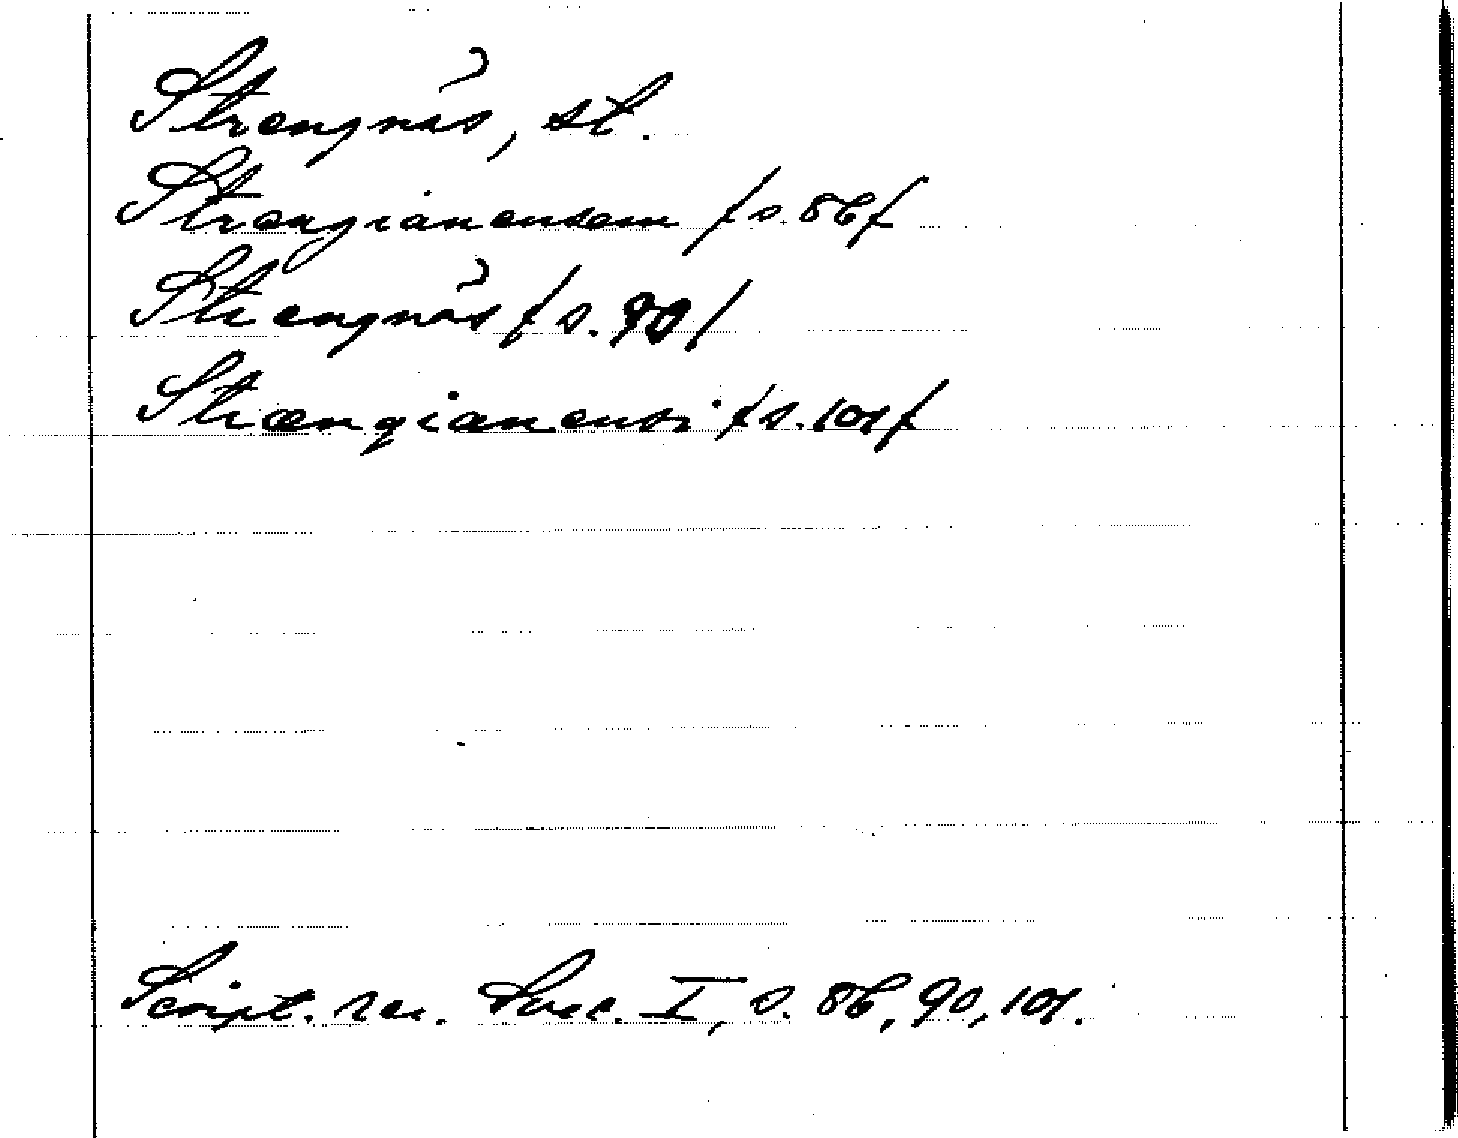 Strengnäs, st.
Strengianensem /s. 86/
Strengnäs /s. 90/
Strængianensi /s. 101/
Script. rer. Suec. I, s. 86, 90, 101.